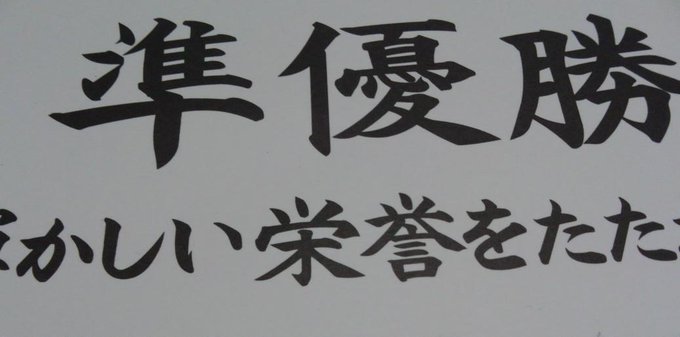 準優勝
かしい栄誉をたた